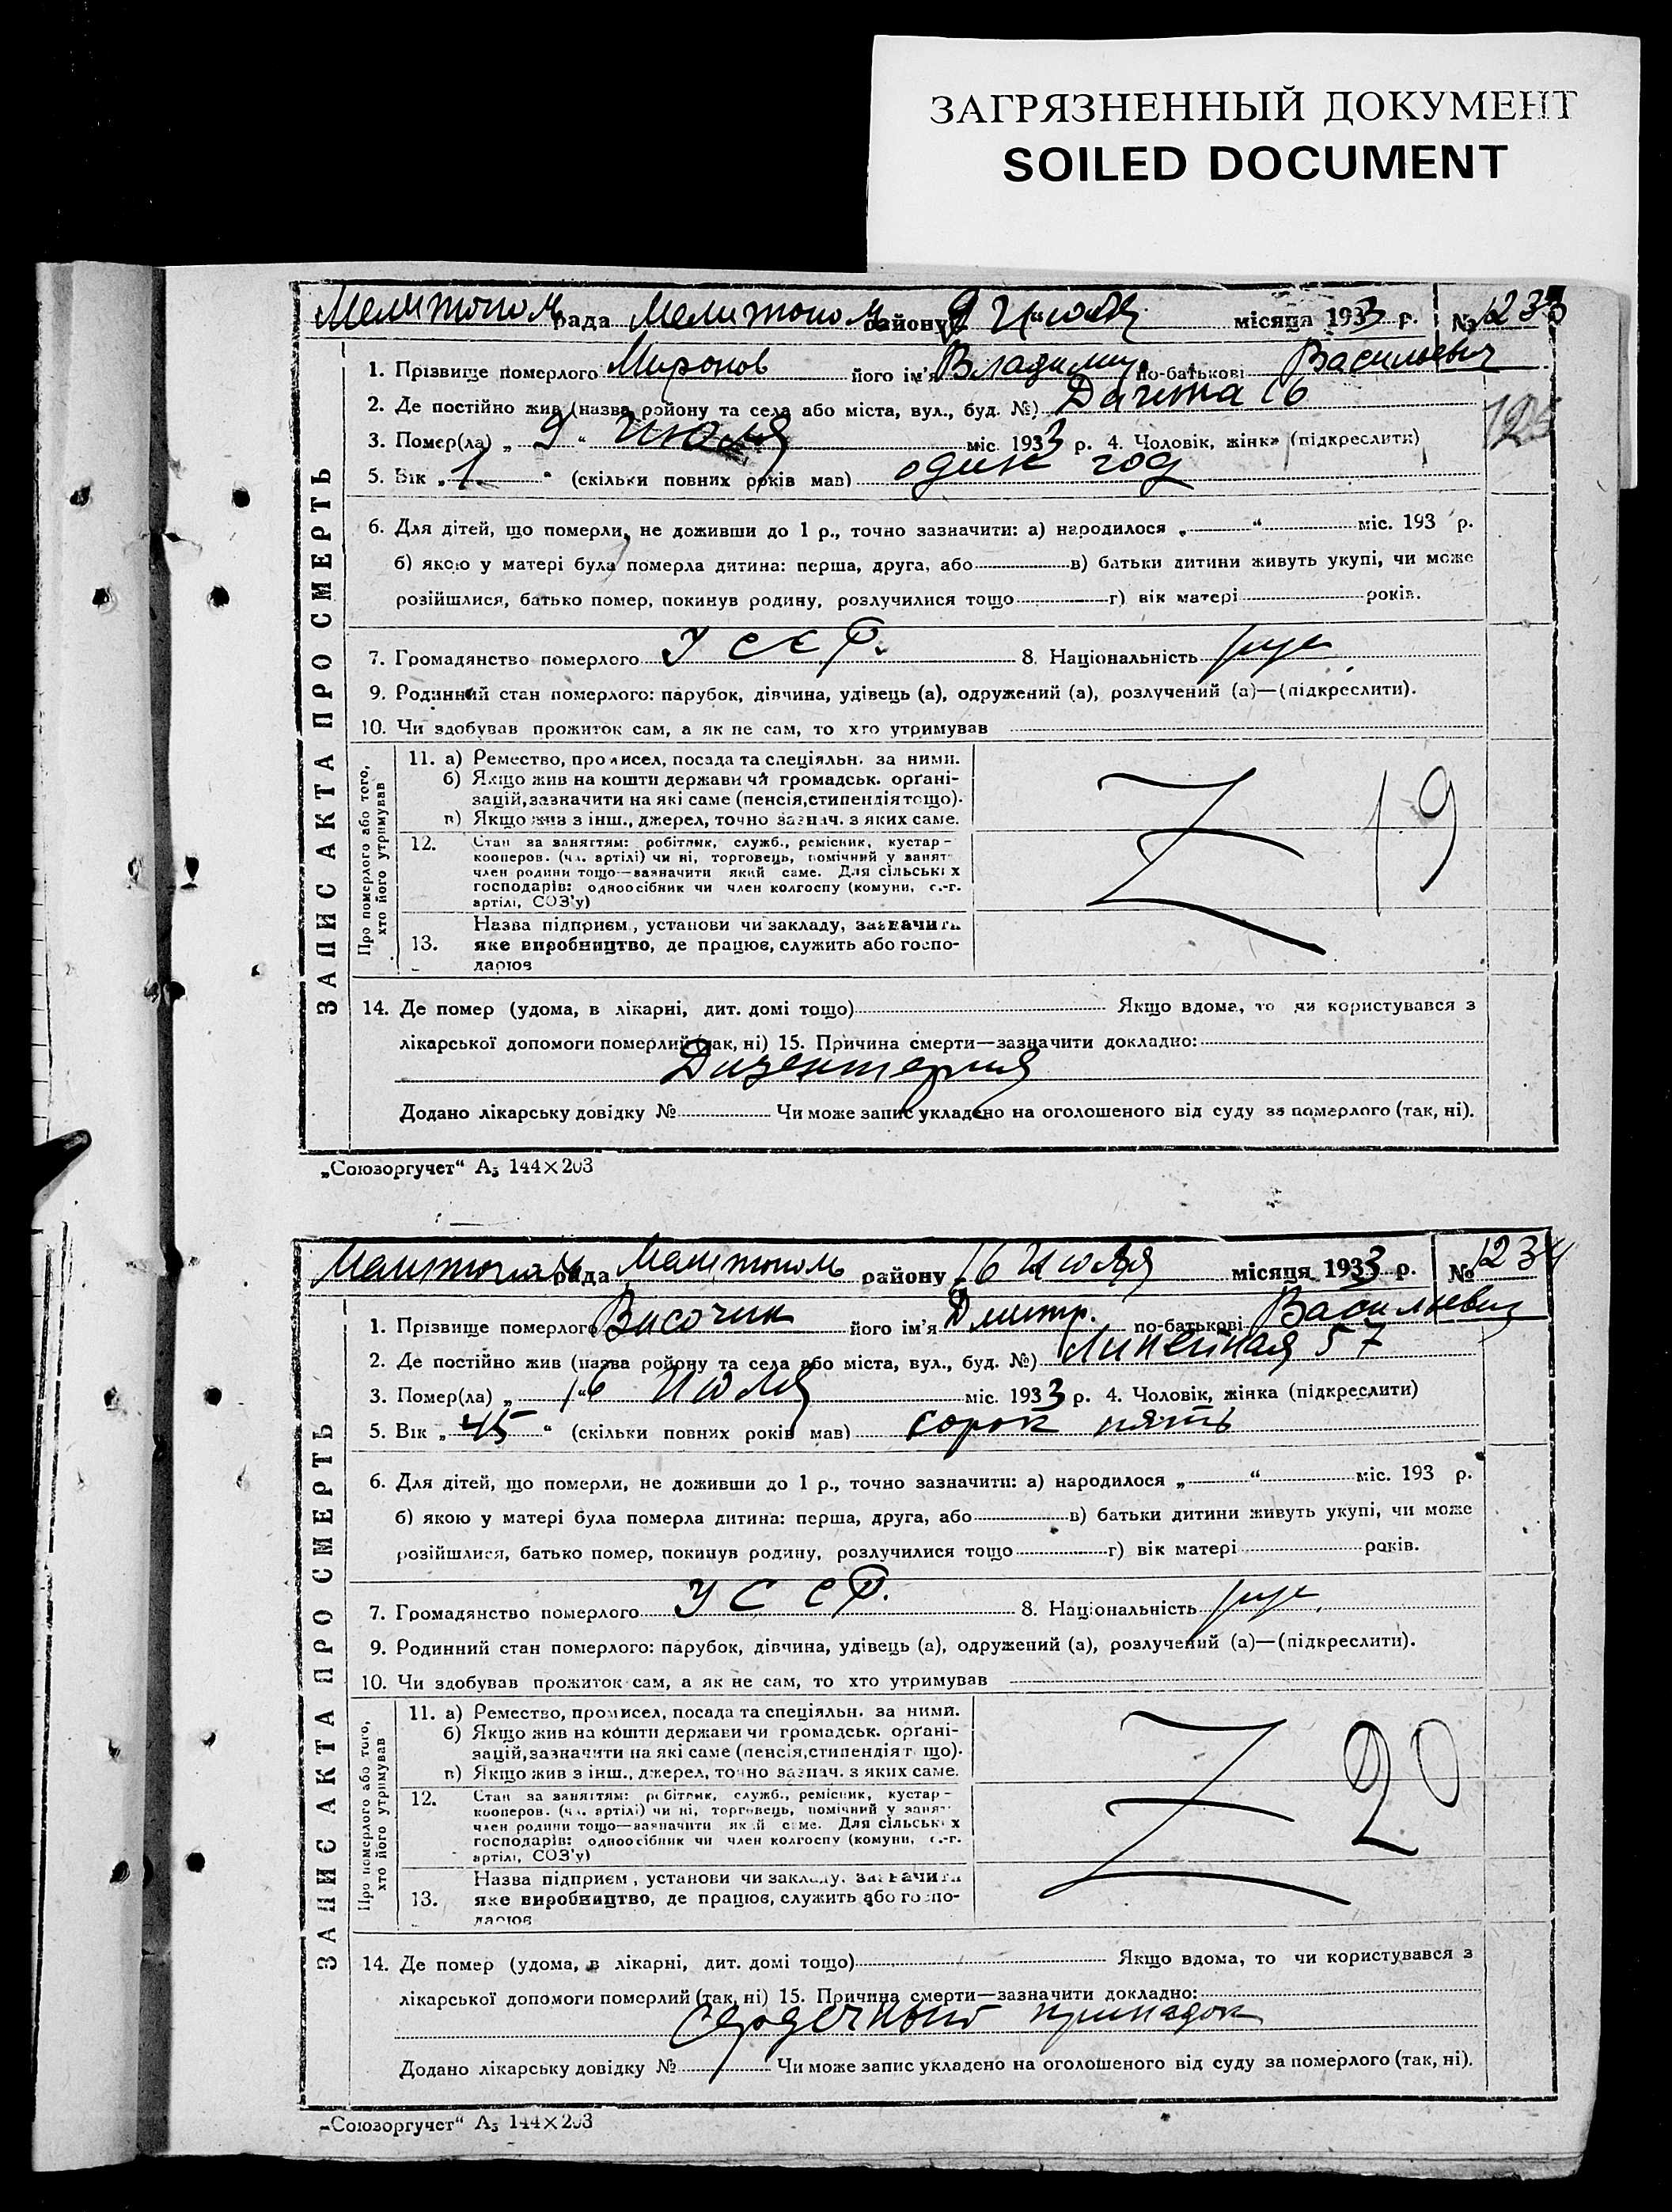 ЗАГРЯЗНЕННЫЙ ДОКУМЕНТ
SOILED DOCUMENT
Мелитополь рада Мелитополь району 9 Июля місяця 1933 р. № 1233
1. Прізвище померлого Миронов його ім'я Владимир по-батькові Васильевич
2. Де постійно жив (назва району та села або міста, вул., буд. №) 16
125
3. Помер(ла) „ 9 “ Июля міс. 1933 р. 4. Чоловік, жінка (підкреслити)
5. Вік „ 1 “ (скільки повних років мав) один год
6. Для дітей, що померли, не доживши до 1 р., точно зазначити: а) народилося „ “ міс. 193 р.
б) якою у матері була померла дитина: перша, друга, або в) батьки дитини живуть укупі, чи може
розійшлися, батько помер, покинув родину, розлучилися тощо г) вік матері років.
7. Громадянство померлого УССР. 8. Національність рус
9. Родинний стан померлого: парубок, дівчина, удівець (а), одружений (а), розлучений (а)—(підкреслити).
10. Чи здобував прожиток сам, а як не сам, то хто утримував
ЗАПИС АКТА ПРО СМЕРТЬ
Про померлого або того, хто його утримував
11. а) Ремество, промисел, посада та спеціяльн. за ними.
б) Якщо жив на кошти держави чи громадськ. орґані-
зацій, зазначити на які саме (пенсія, стипендія тощо).
в) Якщо жив з інш., джерел, точно зазнач. з яких саме.
19
12. Стан за заняттям: робітник, служб., ремісник, кустар-
кооперов. (чл. артілі) чи ні, торговець, помічний у занят.
член родини тощо—зазначити який саме. Для сільських
господарів: одноосібник чи член колгоспу (комуни, с.-г.
артілі, СОЗ'у)
13. Назва підприєм., установи чи закладу, зазначити
яке виробництво, де працює, служить або госпо-
дарює
14. Де помер (удома, в лікарні, дит. домі тощо) Якщо вдома, то чи користувався з
лікарської допомоги померлий (так, ні) 15. Причина смерти—зазначити докладно:
Дизентерия
Додано лікарську довідку № Чи може запис укладено на оголошеного від суду за померлого (так, ні).
„Союзоргучет“ А5 144×203
Мелитополь рада Мелитополь району 16 Июля місяця 1933 р. № 1234
1. Прізвище померлого Височин його ім'я Дмитр. по-батькові Васильевич
2. Де постійно жив (назва ройону та села або міста, вул., буд. №) Линейная 57
3. Помер(ла) „ 16 “ Июля міс. 1933 р. 4. Чоловік, жінка (підкреслити)
5. Вік „ 45 “ (скільки повних років мав) сорок пять
6. Для дітей, що померли, не доживши до 1 р., точно зазначити: а) народилося „ “ міс. 193 р.
б) якою у матері була померла дитина: перша, друга, або в) батьки дитини живуть укупі, чи може
розійшлися, батько помер, покинув родину, розлучилися тощо г) вік матері років.
7. Громадянство померлого УССР. 8. Національність рус
9. Родинний стан померлого: парубок, дівчина, удівець (а), одружений (а), розлучений (а)—(підкреслити).
10. Чи здобував прожиток сам, а як не сам, то хто утримував
ЗАПИС АКТА ПРО СМЕРТЬ
Про померлого або того, хто його утримував
11. а) Ремество, промисел, посада та спеціяльн. за ними.
б) Якщо жив на кошти держави чи громадськ. орґані-
зацій, зазначити на які саме (пенсія, стипендія тощо).
в) Якщо жив з інш., джерел, точно зазнач. з яких саме.
20
12. Стан за заняттям: робітник, служб., ремісник, кустар-
кооперов. (чл. артілі) чи ні, торговець, помічний у занят.
член родини тощо—зазначити який саме. Для сільських
господарів: одноосібник чи член колгоспу (комуни, с.-г.
артілі, СОЗ'у)
13. Назва підприєм., установи чи закладу, зазначити
яке виробництво, де працює, служить або госпо-
дарює
14. Де помер (удома, в лікарні, дит. домі тощо) Якщо вдома, то чи користувався з
лікарської допомоги померлий (так, ні) 15. Причина смерти—зазначити докладно:
Сердечный припадок
Додано лікарську довідку № Чи може запис укладено на оголошеного від суду за померлого (так, ні).
„Союзоргучет“ А5 144×203